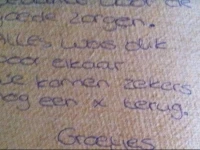 goede zorgen.
Alles was dik
voor elkaar
We komen zekers
nog een x terug.
Groetjes